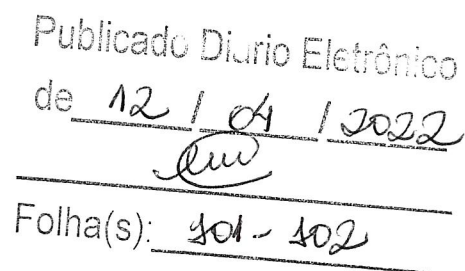 Publicado Diário Eletrônico
de 12 / 04 / 2022
Folha(s): 101-102